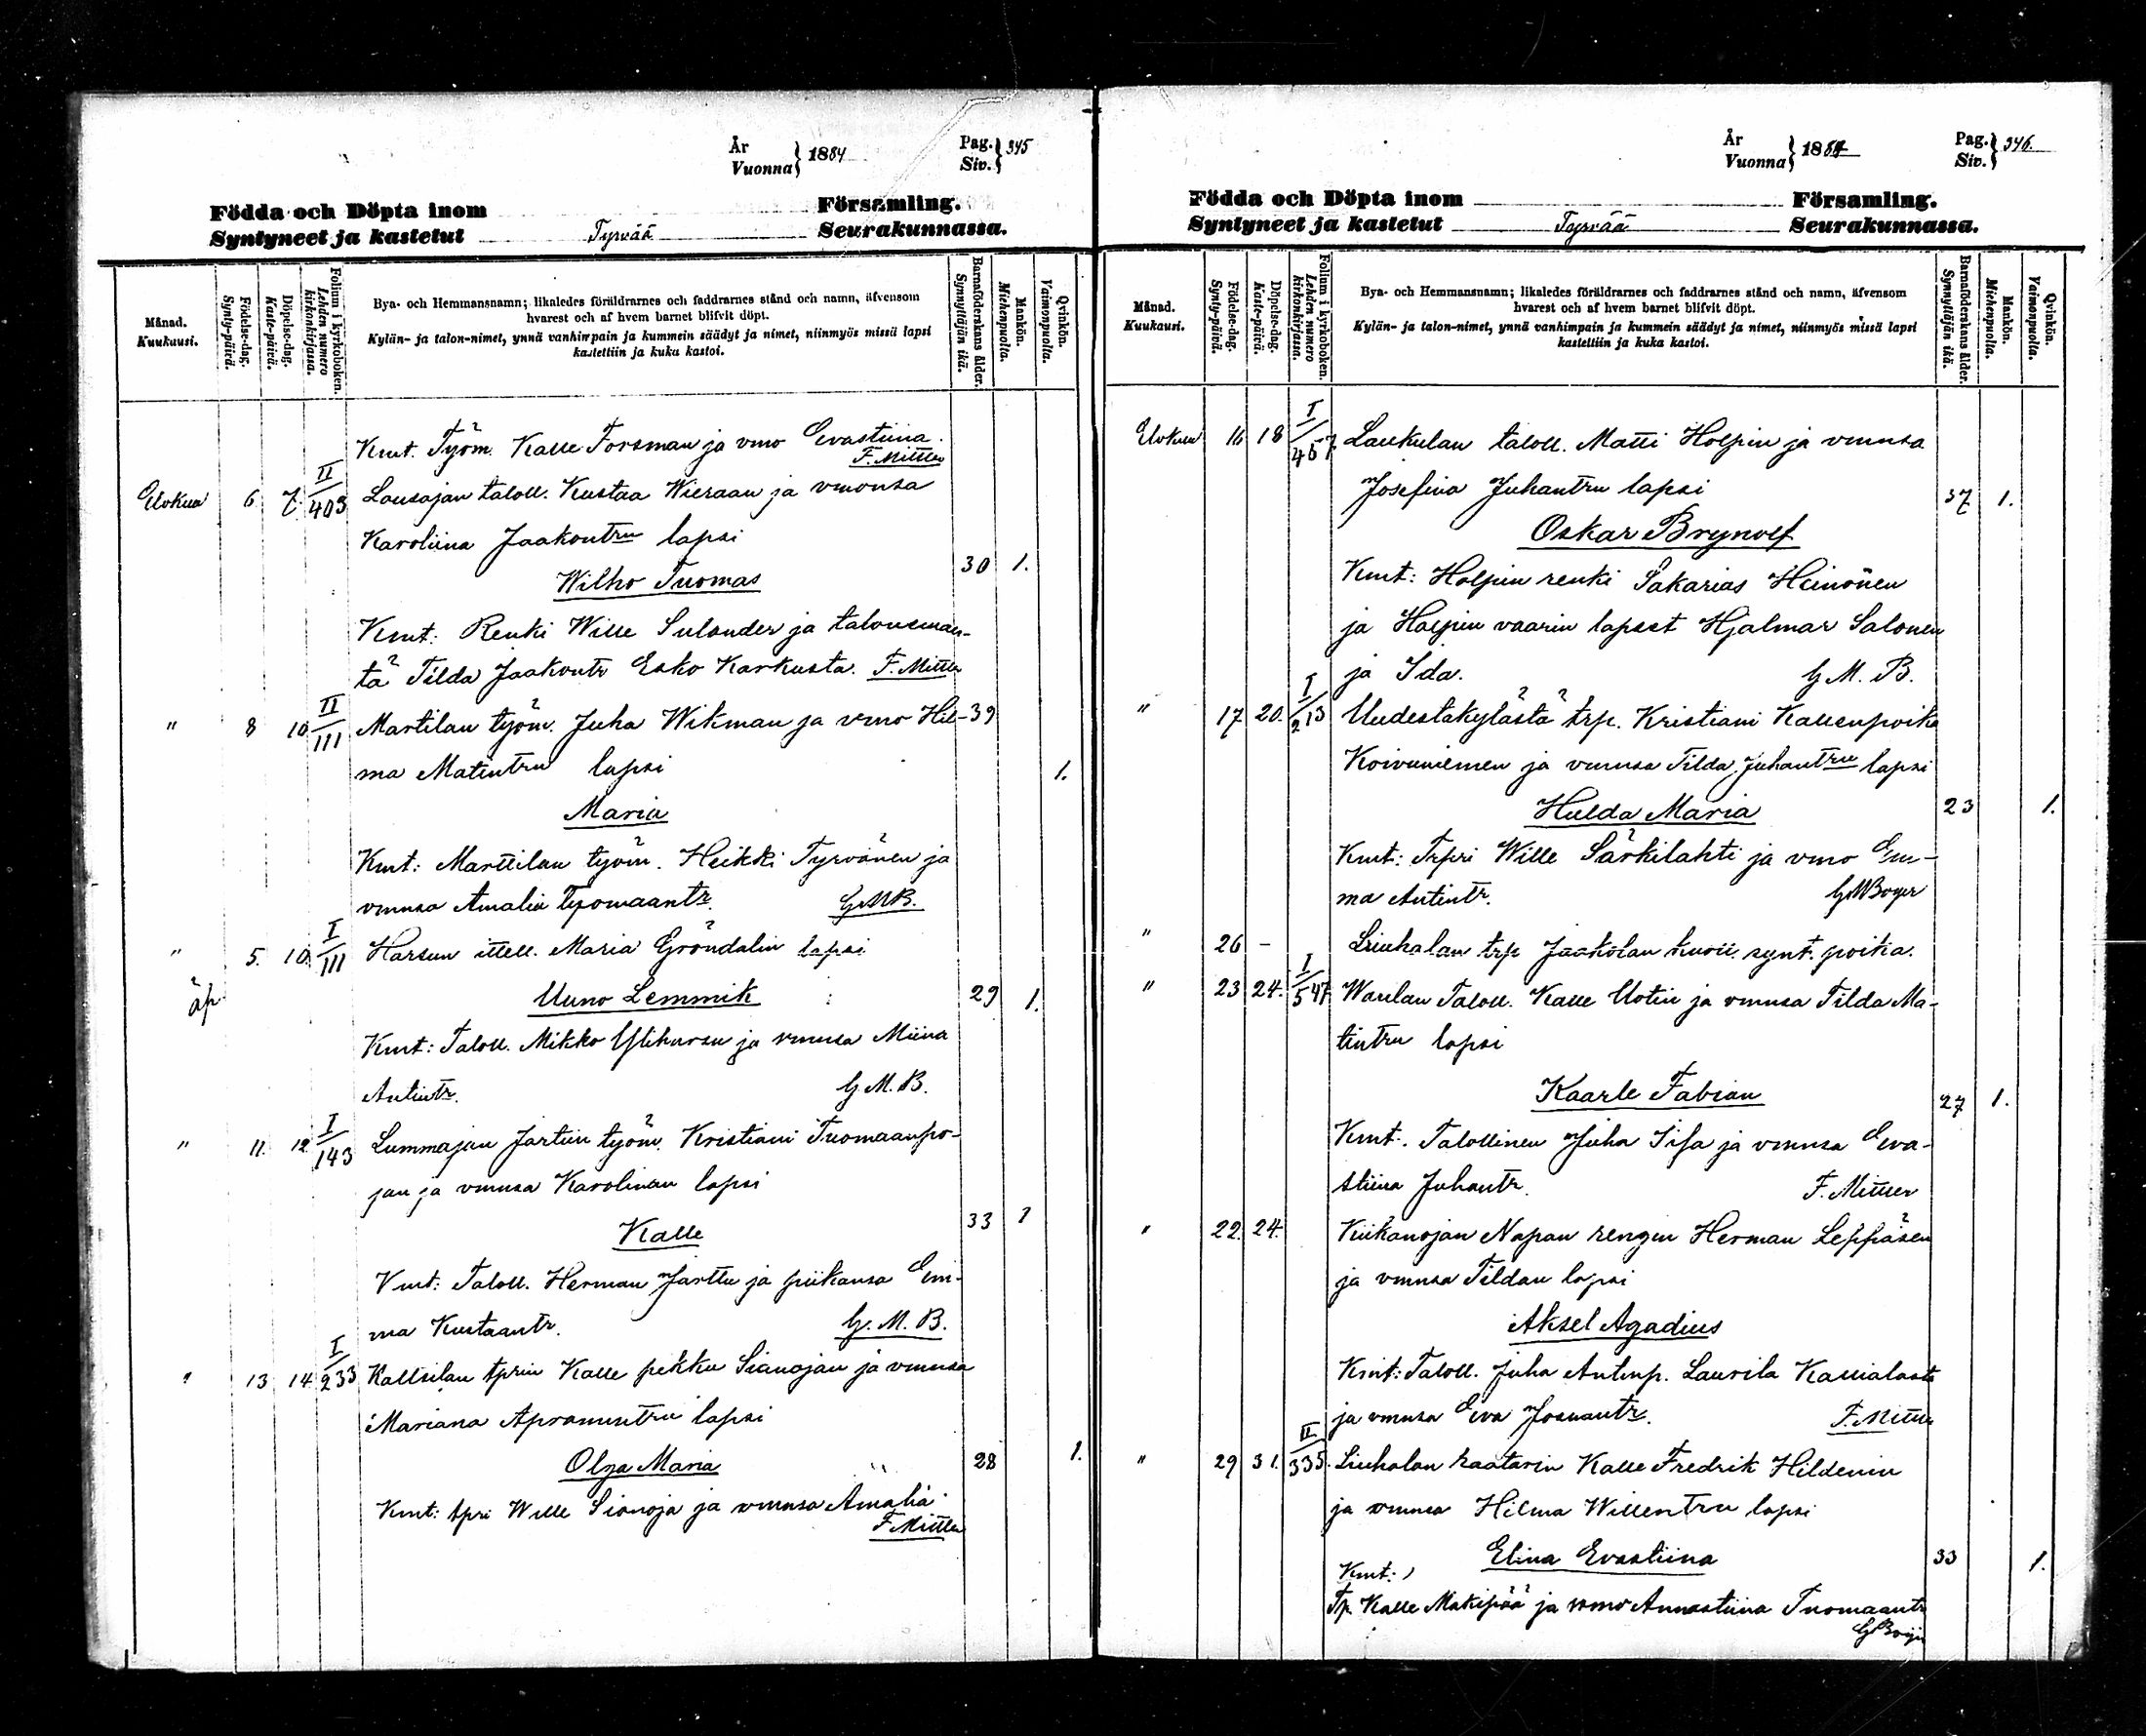 År
Vuonna } 1884
Pag.
Siv. } 345
Födda och Döpta inom Församling.
Syntyneet ja kastetut Tyrvää Seurakunnassa.
Månad.
Kuukausi.
Födelse-dag.
Synty-päivä.
Döpelse-dag.
Kaste-päivä.
Folium i kyrkoboken.
Lehden numero
kirkonkirjassa.
Bya- och Hemmansnamn; likaledes föräldrarnes och faddrarnes stånd och namn, äfvensom
hvarest och af hvem barnet blifvit döpt.
Kylän- ja talon-nimet, ynnä vanhimpain ja kummein säädyt ja nimet, niinmyös missä lapsi
kastettiin ja kuka kastoi.
Barnaföderskans ålder.
Synnyttäjän ikä.
Mankön.
Miehenpuolta.
Qvinkön.
Vaimonpuolta.
Kmt. Työm. Kalle Forsman ja vmo Evastiina.
F. Mittler
Elokuu 6 7. II/403 Lausajan taloll. Kustaa Wieraan ja vmonsa
Karoliina Jaakontrn lapsi
Wilho Tuomas 30 1.
Kmt: Renki Wille Sulander ja talonemän-
tä Tilda Jaakontr Esko Karkusta. F. Mittler
" 8 10 II/111 Martilan työm. Juha Wikman ja vmo Hil- 39
ma Matintrn lapsi 1.
Maria
Kmt: Marttilan työm. Heikki Tyrvänen ja
vmnsa Amalia Tuomaantr. G.M.B.
" 5. 10. I/111 Harsun ittell. Maria Gröndalin lapsi
äp. Uuno Lemmik 29 1.
Kmt: Taloll. Mikko Ylihursu ja vmnsa Miina
Antintr. G. M. B.
" 11. 12 I/143 Lummajan Jartun työm. Kristiani Tuomaanpo-
jan ja vmnsa Karolinan lapsi
Kalle 33 1
Kmt: Taloll. Herman Jarttu ja piikansa Em-
ma Kustaantr. G. M. B.
" 13 14 I/233 Kallsilan tprin Kalle pekku Sianojan ja vmnsa
Mariana Apramintrn lapsi
Olga Maria 28 1.
Kmt: tpri Wille Sianoja ja vmnsa Amalia
F Mittler
År
Vuonna } 1884
Pag.
Siv. } 346.
Födda och Döpta inom Församling.
Syntyneet ja kastetut Tyrvää Seurakunnassa.
Månad.
Kuukausi.
Födelse-dag.
Synty-päivä.
Döpelse-dag.
Kaste-päivä.
Folium i kyrkoboken.
Lehden numero
kirkonkirjassa.
Bya- och Hemmansnamn; likaledes föräldrarnes och faddrarnes stånd och namn, äfvensom
hvarest och af hvem barnet blifvit döpt.
Kylän- ja talon-nimet, ynnä vanhimpain ja kummein säädyt ja nimet, niinmyös missä lapsi
kastettiin ja kuka kastoi.
Barnaföderskans ålder.
Synnyttäjän ikä.
Mankön.
Miehenpuolta.
Qvinkön.
Vaimonpuolta.
Elokuu 16 18 I/457 Laukulan taloll. Matti Holpin ja vmnsa
Josefina Juhantrn lapsi 37 1.
Oskar Brynolf
Kmt: Holpin renki Sakarias Heinönen
ja Holpin vaarin lapset Hjalmar Salonen
ja Ida. G M. B.
" 17 20. I/213 Uudestakylästä trp. Kristiani Kallenpoika
Koivuniemen ja vmnsa Tilda Juhantrn lapsi
Hulda Maria 23 1.
Kmt: Trpri Wille Särkilahti ja vmo Em-
ma Antintr.
" 26 - Liuhalan trp Jaakolan kuoll. synt. poika.
" 23 24. I/547 Waulan Taloll. Kalle Uotin ja vmnsa Tilda Ma-
tintrn lapsi
Kaarle Fabian 27 1.
Kmt. Talollinen Juha Sifa ja vmnsa Eva-
stiina Juhantr. F. Mittler
" 22. 24. Kiikanojan Napan rengin Herman Leppäsen
ja vmnsa Tildan lapsi
Aksel Agadius
Kmt: Taloll. Juha Antinp. Laurila Kallialasta
ja vmnsa Eva Josuantr. F. Mittler
" 29 31. II/335. Liuhalan räätärin Kalle Fredrik Hildenin
ja vmnsa Hilma Willentrn lapsi
Elina Evastiina 33 1.
Kmt:
Tp. Kalle Mäkipää ja vmo Annastiina Tuomaantr